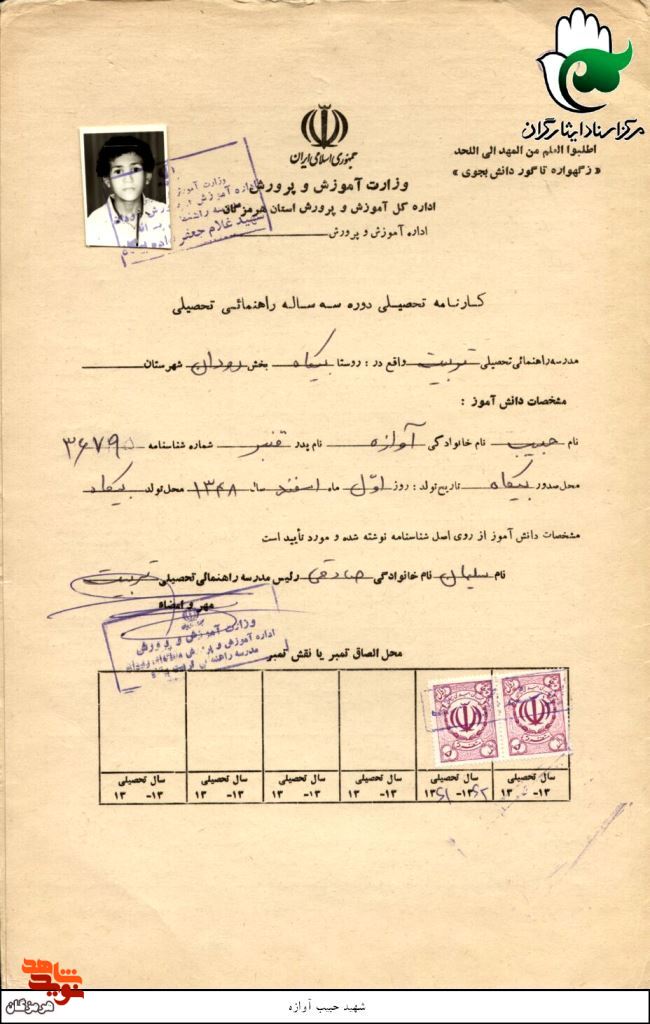 مرکز اسناد ایثارگران
جمهوری اسلامی ایران
اطلبوا العلم من المهد الی اللحد
« زگهواره تا گور دانش بجوی »
وزارت آموزش و پرورش
اداره کل آموزش و پرورش استان هرمزگان
اداره آموزش و پرورش
وزارت آموزش
شهید غلام جعفر
کارنامه تحصیلی دوره سه ساله راهنمائی تحصیلی
مدرسه راهنمائی تحصیلی تربیت واقع در : روستا بیکاه بخش رودان شهرستان
مشخصات دانش آموز :
نام حبیب نام خانوادگی آوازه نام پدر قنبر شماره شناسنامه ۳۶۷۹۵
محل صدور بیکاه تاریخ تولد : روز اول ماه اسفند سال ۱۳۴۸ محل تولد بیکاه
مشخصات دانش آموز از روی اصل شناسنامه نوشته شده و مورد تأیید است
نام سلیمان نام خانوادگی صادقی رئیس مدرسه راهنمائی تحصیلی تربیت
مهر و امضاء
وزارت آموزش و پرورش
اداره آموزش و پرورش
مدرسه راهنمائی
محل الصاق تمبر یا نقش تمبر
سال تحصیلی سال تحصیلی سال تحصیلی سال تحصیلی سال تحصیلی سال تحصیلی
۱۳ -۱۳ ۱۳۶۲-۱۳۶۱ ۱۳ -۱۳ ۱۳ -۱۳ ۱۳ -۱۳ ۱۳ -۱۳
نوید شاهد
هرمزگان
شهید حبیب آوازه